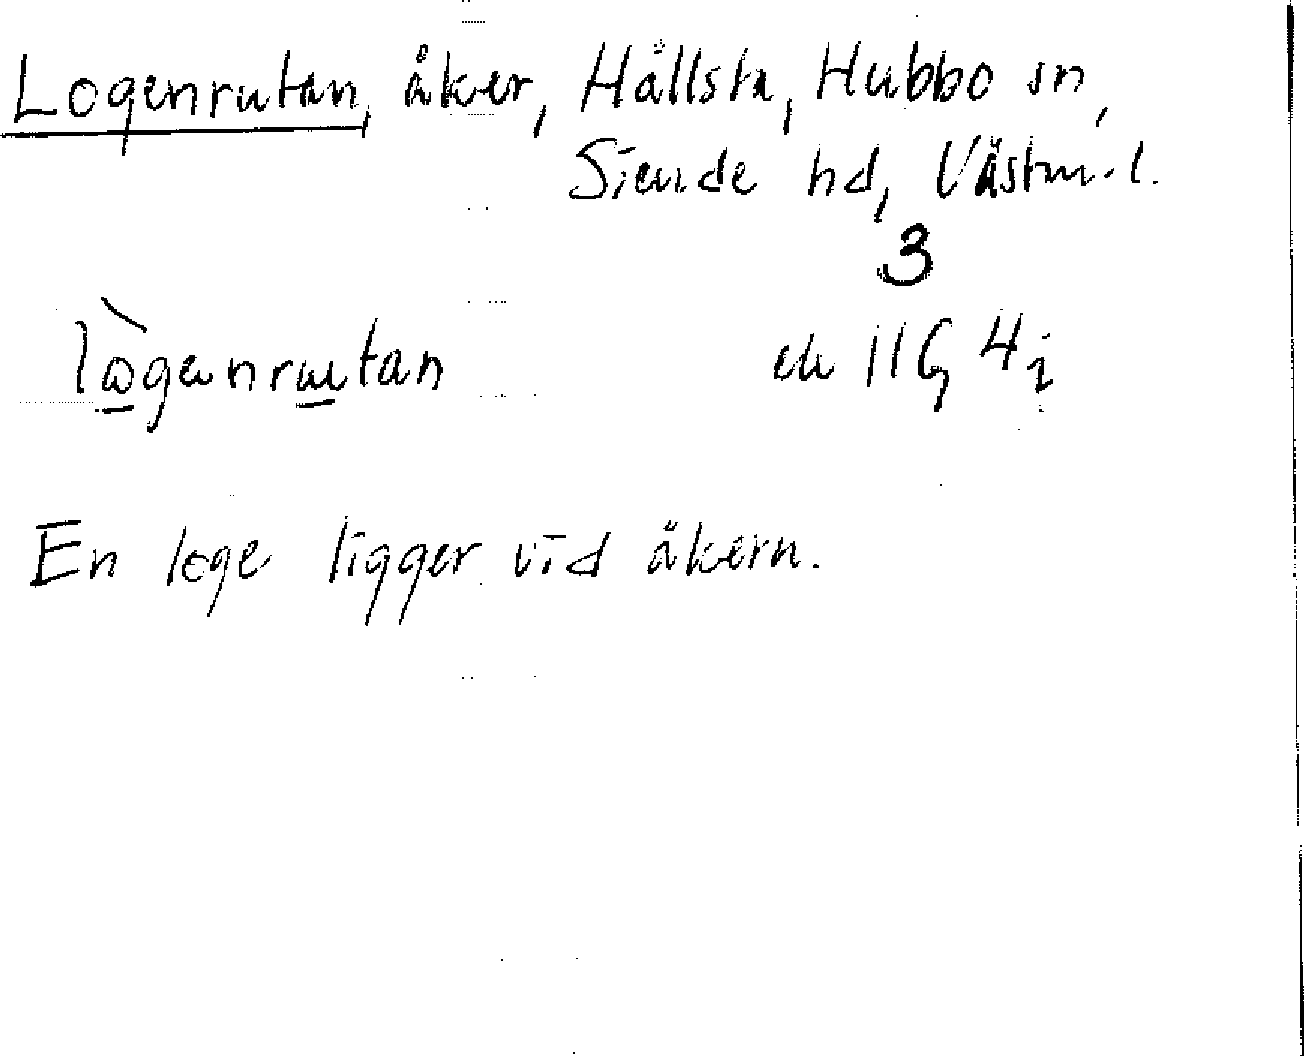 Logenrutan, åker, Hållsta, Hubbo sn,
Siende hd, Västm. l.
3
lò̲genru̲tan ek 11G 4i
En loge ligger vid åkern.